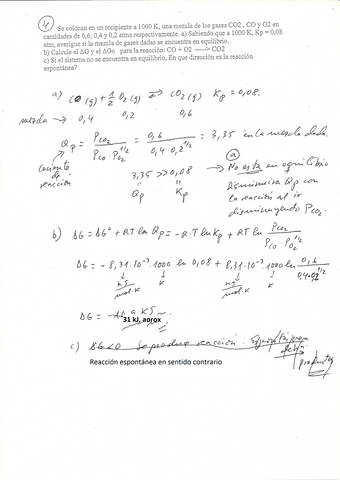 4
Se colocan en un recipiente a 1000 K, una mezcla de los gases CO2 , CO y O2 en
cantidades de 0,6; 0,4 y 0,2 atms respectivamente. a) Sabiendo que a 1000 K, Kp = 0,08
atm, averigue si la mezcla de gases dadas se encuentra en equilibrio.
b) Calcule el ΔG y el ΔGo para la reacción: CO + O2 -----> CO2
c) Si el sistema no se encuentra en equilibrio, En que dirección es la reacción
espontánea?
a) CO (g) + 1/2 O2 (g) ⇄ CO2 (g) Kp = 0,08.
mezcla → 0,4 0,2 0,6
Qp = PCO2 / PCO · PO2^1/2 = 0,6 / 0,4 · 0,2^1/2 = 3,35 en la mezcla dada.
Cociente de reacción
3,35 >> 0,08
Qp Kp
a
→ No está en equilibrio
Disminuirá Qp con
la reacción al ir
disminuyendo PCO2.
b) ΔG = ΔG° + RT ln Qp = - R·T ln Kp + RT ln PCO2 / PCO · PO2^1/2
ΔG = - 8,31·10⁻³·1000 ln 0,08 + 8,31·10⁻³·1000 ln 0,6 / 0,4·0,2^1/2
KJ/mol·K K KJ/mol·K K
ΔG =
31 kJ, aprox
c) ΔG<0 Se produce reacción.
productos
Reacción espontánea en sentido contrario